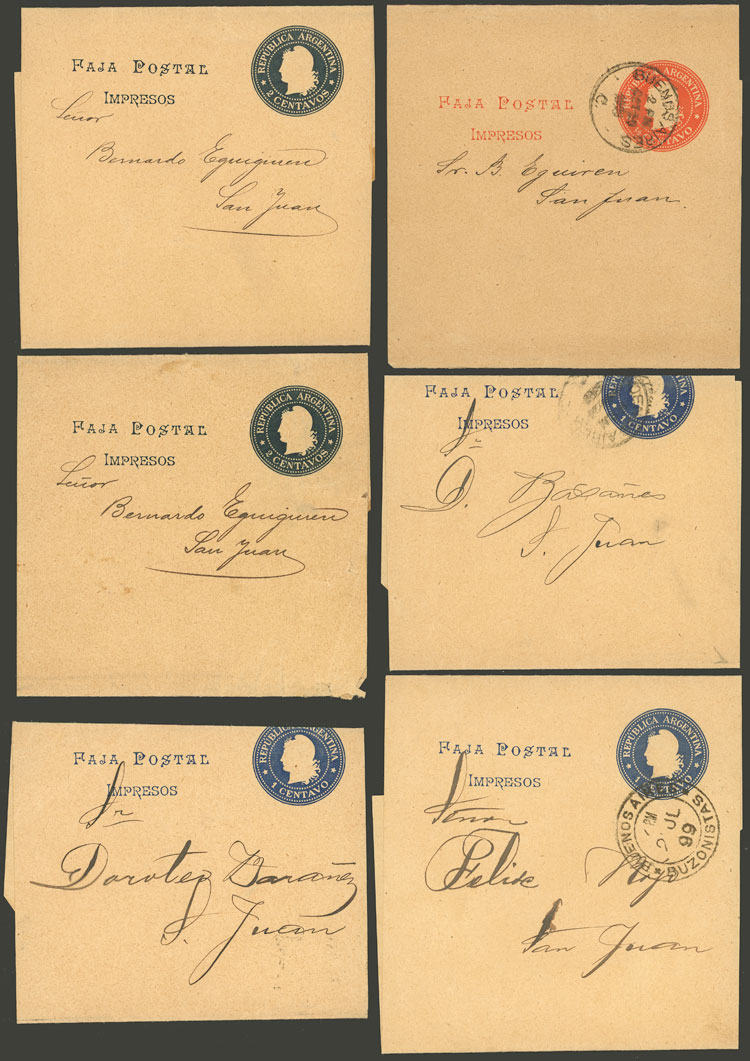 FAJA POSTAL
IMPRESOS
REPUBLICA ARGENTINA
2 CENTAVOS
Señor
Bernardo Eguiguren
San Juan
FAJA POSTAL
IMPRESOS
REPUBLICA ARGENTINA
CENTAVO
BUENOS AIRES
Sr. B. Eguiren
San Juan.
FAJA POSTAL
IMPRESOS
REPUBLICA ARGENTINA
2 CENTAVOS
Señor
Bernardo Eguiguren
San Juan
FAJA POSTAL
IMPRESOS
1 CENTAVO
Sr
D.
S. Juan
FAJA POSTAL
IMPRESOS
REPUBLICA ARGENTINA
1 CENTAVO
Sr
Doroteo
S. Juan
FAJA POSTAL
IMPRESOS
REPUBLICA ARGENTINA
1 CENTAVO
BUENOS AIRES
BUZONISTAS
JUL
99
Señor
Felix
San Juan